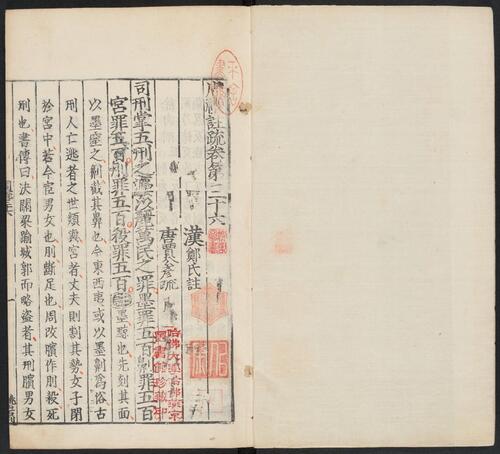 周禮註疏卷第三十六
漢鄭氏註
唐賈公彥疏
司刑掌五刑之灋以麗萬民之罪墨罪五百劓罪五百
宮罪五百刖罪五百殺罪五百墨黥也先刻其面
以墨窒之劓截其鼻也今東西夷或以墨劓爲俗古
刑人亡逃者之世類與宮者丈夫則割其勢女子閉
於宮中若今宦男女也刖斷足也周改臏作刖殺死
刑也書傳曰決關梁踰城郭而略盜者其刑臏男女
哈佛大學哈佛燕京
圖書館珍藏印